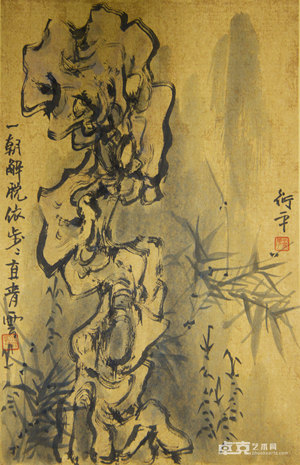 衍平
一朝解脱依步々直青雲上
卓克艺术网